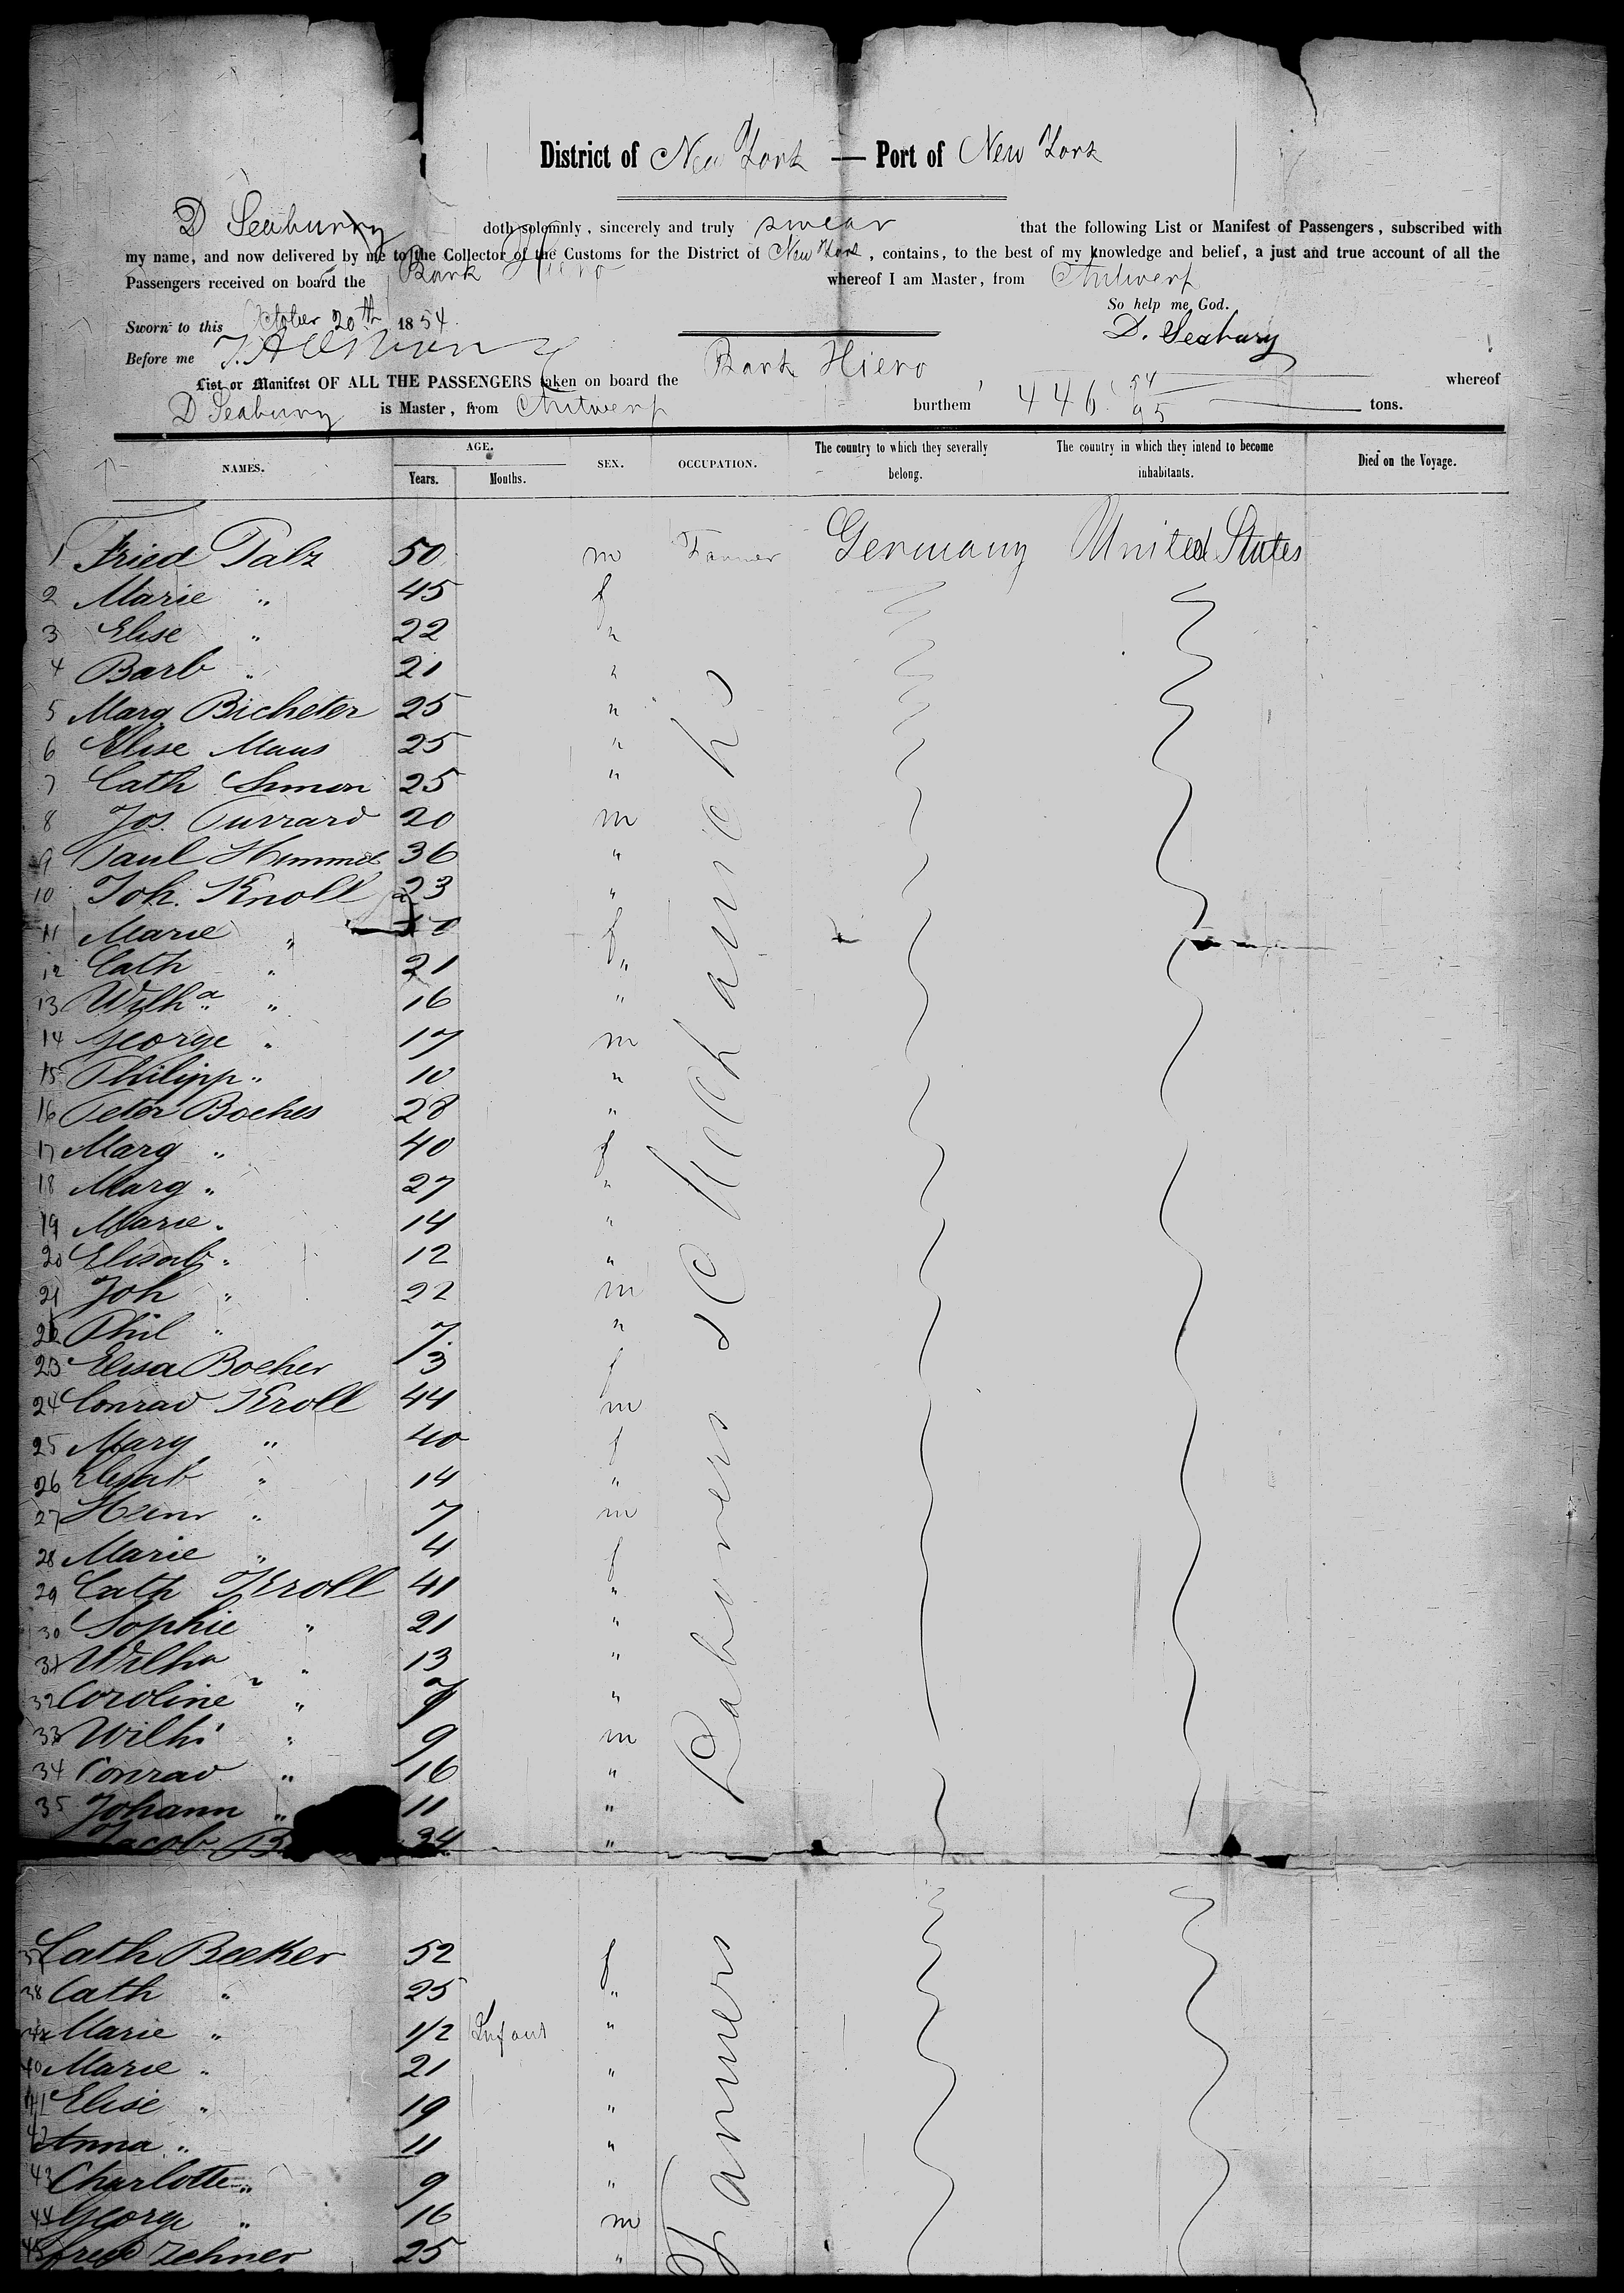 District of New York — Port of New York
D Seaburry doth solemnly, sincerely and truly swear that the following List or Manifest of Passengers, subscribed with
my name, and now delivered by me to the Collector of the Customs for the District of New York, contains, to the best of my knowledge and belief, a just and true account of all the
Passengers received on board the Bark Hiero whereof I am Master, from Antwerp
So help me God.
Sworn to this October 20th 1854.
D. Seabury
Before me
List or Manifest OF ALL THE PASSENGERS taken on board the Bark Hiero whereof
D Seabury is Master, from Antwerp burthem 446 54/95 tons.
NAMES. AGE. Years. Months. SEX. OCCUPATION. The country to which they severally belong. The country in which they intend to become inhabitants. Died on the Voyage.
1 Fried Palz 50 m Farmer Germany United States
2 Marie " 45 f
3 Elise " 22 "
4 Barb " 21 "
5 Marg Bicheler 25 "
6 Elise Maus 25 "
7 Cath Simon 25 "
8 Jos. 20 m
9 Paul Himmel 36 "
10 Joh. Knoll 23 "
11 Marie " f
12 Cath " 21 "
13 Wilha " 16 "
14 George " 17 m
15 Philipp " 10 "
16 Peter Boches 28 "
17 Marg " 40 f
18 Marg " 27 "
19 Marie " 14 "
20 Elisab " 12 "
21 Joh " 22 m
22 Phil " 7 "
23 Elisa Bocher 3 f
24 Conrad Kroll 44 m
25 Mary " 40 f
26 Elisab " 14 "
27 Heinr " 7 m
28 Marie " 4 f
29 Cath Kroll 41 "
30 Sophie " 21 "
31 Wilha " 13 "
32 Coroline " 7 "
33 Wilh " 9 m
34 Conrad " 16 "
35 Johann " 11 "
Jacob 24 "
Labourers & Mechanichs
37 Cath Beeker 52 f
38 Cath " 25 "
Marie " 1/2 Infant "
40 Marie " 21 "
41 Elise " 19 "
42 Anna " 11 "
43 Charlotte " 9 "
44 George " 16 m
45 Fried Zehner 25 "
Farmers